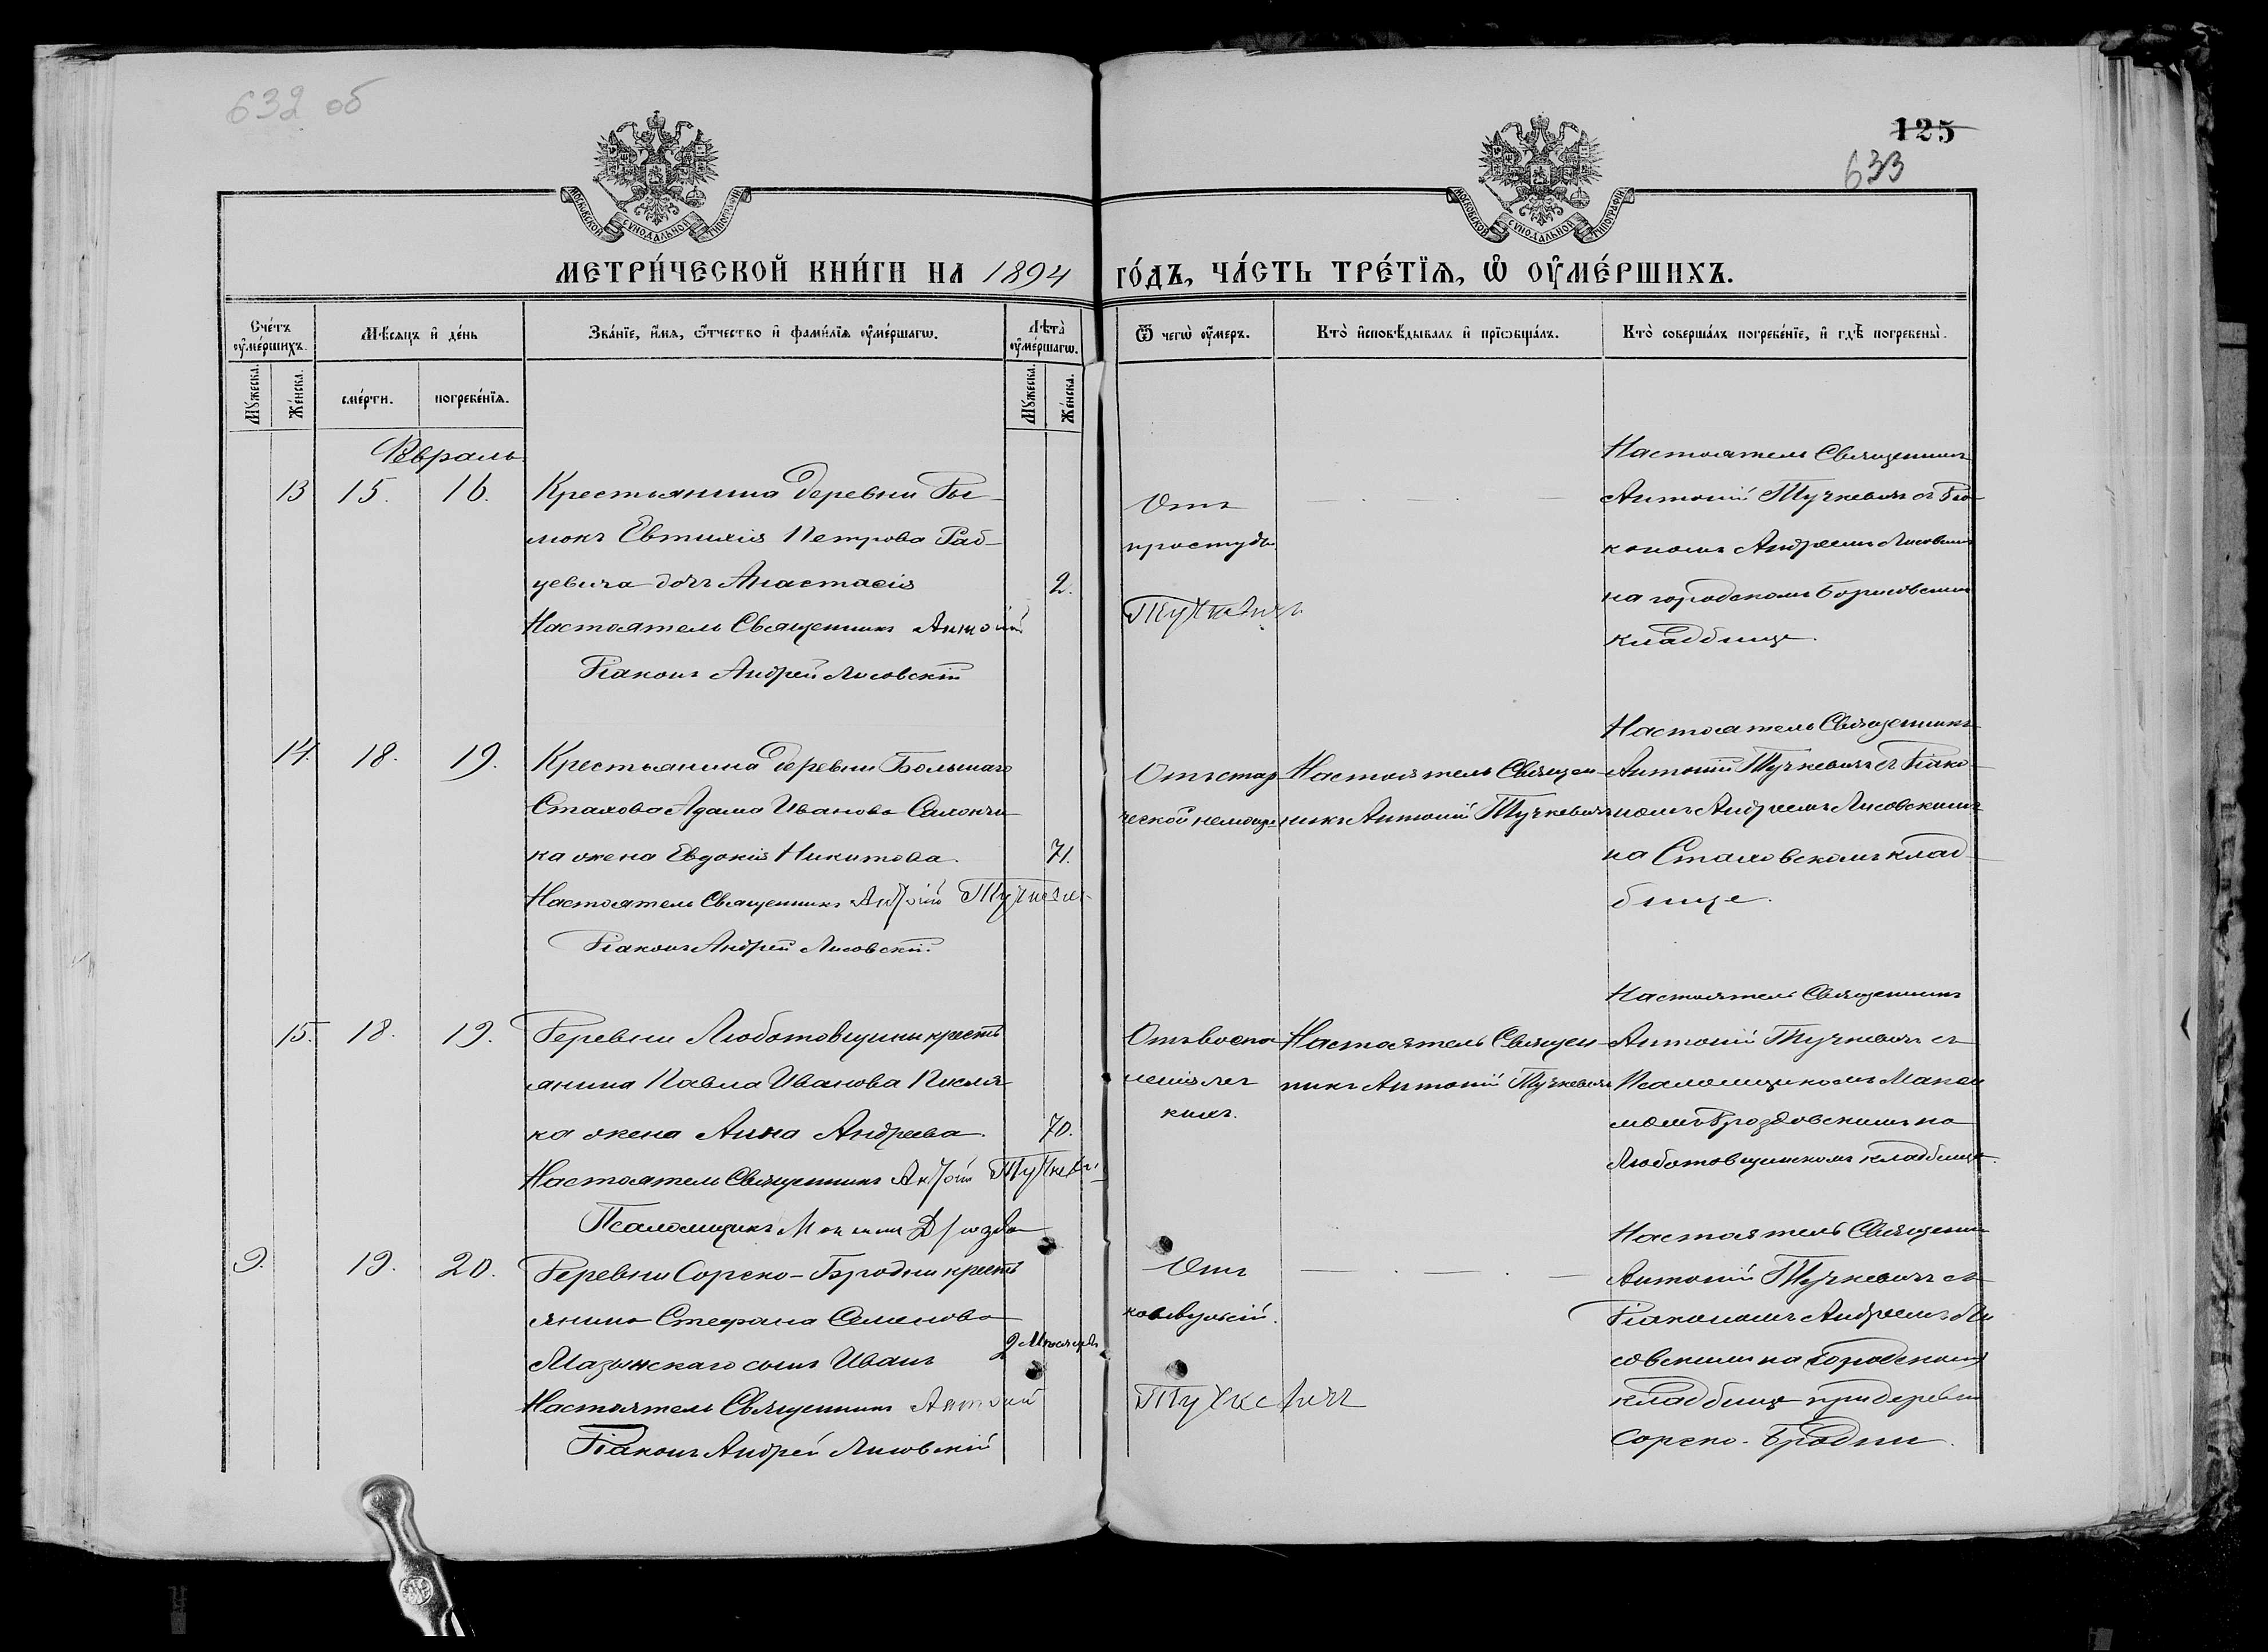 632 об
125
633
МОСКОВСКОЙ СѴНОДАЛЬНОЙ ТИПОГРАФІИ
МОСКОВСКОЙ СѴНОДАЛЬНОЙ ТИПОГРАФІИ
МЕТРИ́ЧЕСКОЙ КНИ́ГИ НА 1894 ГО́ДЪ, ЧА́СТЬ ТРЕ́ТЇѦ, Ѡ҆ ОУ҆МЕ́РШИХЪ.
Сче́тъ оу҆ме́ршихъ.
Мꙋ́жеска.
Же́нска.
Мѣ́сяцъ и҆ де́нь
сме́рти.
погребе́нїѧ.
Зва́нїе, и҆́мѧ, ѻ҆́тчество и҆ фами́лїѧ оу҆ме́ршагѡ.
Лѣ́та оу҆ме́ршагѡ.
Мꙋ́жеска.
Же́нска.
Ѿ чегѡ̀ оу҆́меръ.
Кто̀ и҆сповѣ́дывалъ и҆ прїѡбща́лъ.
Кто̀ соверша́лъ погребе́нїе, и҆ гдѣ̀ погребены̀.
Февраль
13 15. 16.
Крестьянина деревни
Евтихія Петрова Раб-
цевича дочь Анастасія
2.
Настоятель Священникъ Антоній
Діаконъ Андрей Лисовскій
Отъ
простуды
Тучкевичъ
Настоятель Священникъ
Антоній Тучкевичъ съ Діа-
кономъ Андреемъ Лисовскимъ
на городскомъ Борисовскомъ
кладбище.
14. 18. 19.
Крестьянина деревни Большаго
Стахова Адама Иванова
ка жена Евдокія Никитова.
71.
Настоятель Священникъ Антоній Тучкевичъ
Діаконъ Андрей Лисовскій.
Отъ стар-
ческой немощи
Настоятель Священ-
никъ Антоній Тучкевичъ
Настоятель Священникъ
Антоній Тучкевичъ съ Діако-
номъ Андреемъ Лисовскимъ
на Стаховскомъ клад-
бище.
15. 18. 19.
Деревни Люботовщины кресть
янина Павла Иванова Кисля-
ка жена Анна Андреева.
70.
Настоятель Священникъ Антоній Тучкевичъ
Псаломщикъ
Отъ воспа-
ленія лег
кихъ.
Настоятель Священ-
никъ Антоній Тучкевичъ
Настоятель Священникъ
Антоній Тучкевичъ съ
Псаломщикомъ
Дроздовскимъ на
Люботовщинскомъ кладбище.
9. 19. 20.
Деревни Сорско-Бродни кресть
янина Стефана Семенова
Мазынскаго сынъ Иванъ
2 Месяца
Настоятель Священникъ Антоній
Діаконъ Андрей Лисовскій
Отъ
конвульсій.
Тучкевичъ
Настоятель Священни
Антоній Тучкевичъ съ
Діакономъ Андреемъ Ли
совскимъ на Городскомъ
кладбище при деревни
Сорско-Бродни.